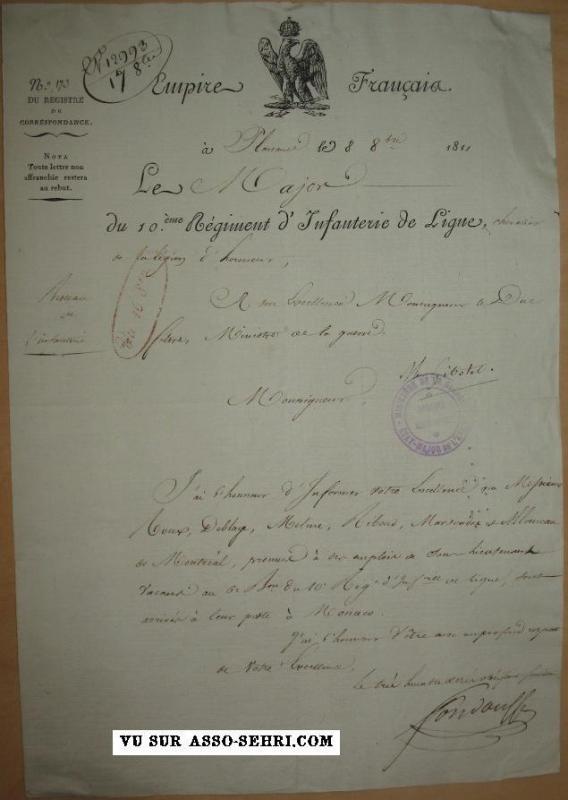 N.º 173
DU REGISTRE
DE
CORRESPONDANCE.
Nº 12993
17 8bre
Empire Français.
NOTA
Toute lettre non
affranchie restera
au rebut.
à Plaisance le 8 8bre 1811
Le Major
du 10.ème Régiment d'Infanterie de Ligne, chevalier
de la légion d'honneur,
Bureau
de
l'infanterie
A son Excellence Monseigneur le Duc
de feltre, Ministre de la guerre.
Monseigneur,
MINISTÈRE DE LA GUERRE
ETAT-MAJOR DE L'
J'ai l'honneur d'Informer votre Excellence que Messieurs
Roux, Deblage, Reboul, et
de Montréal, promus à des emplois de Sous lieutenants
vacants au 6e Bon du 10e Régt d'Infrie de ligne, sont
arrivés à leur poste à Monaco.
J'ai l'honneur d'être avec un profond respect
de Votre Excellence
le très humble et très obéissant serviteur
VU SUR ASSO-SEHRI.COM